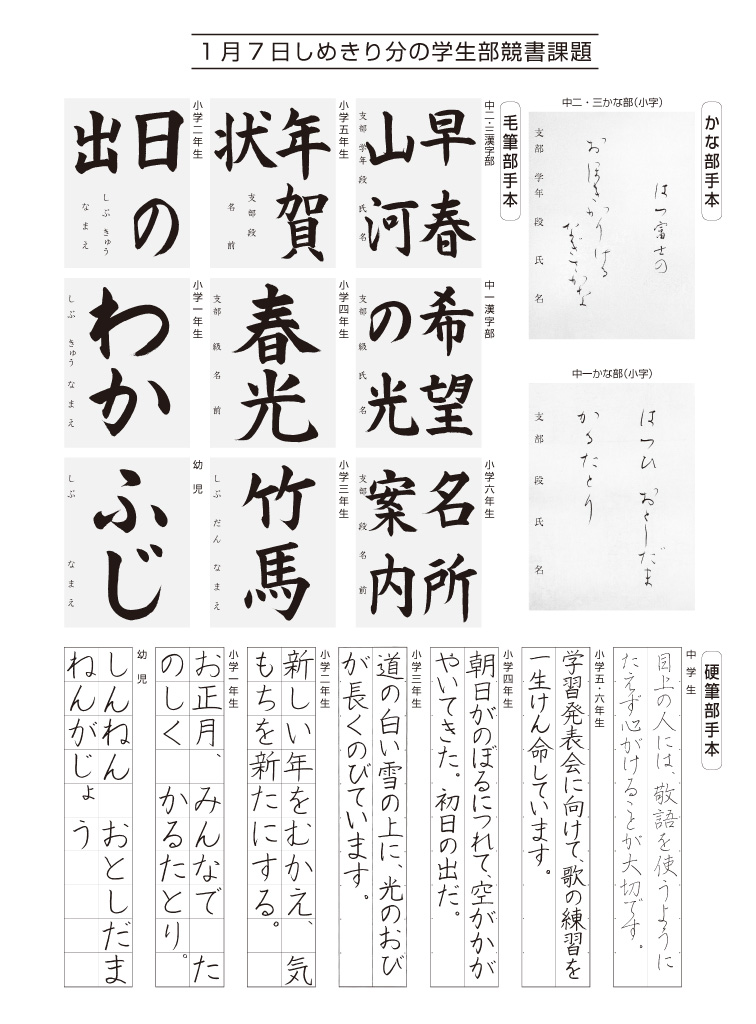 1月7日しめきり分の学生部競書課題
かな部手本
中二・三かな部(小字)
はつ富士の
おほきかりける
なぎさかな
支部 学年 段 氏 名
中一かな部(小字)
はつひ おとしだま
かるたとり
支部 段 氏 名
毛筆部手本
中二・三漢字部
早春
山河
支部 学年 段 氏名
小学五年生
年賀
状
支部 段
名前
小学二年生
日の
出
しぶ きゅう
なまえ
中一漢字部
希望
の光
支部 級 氏名
小学四年生
春光
支部 級 名前
小学一年生
わか
しぶ きゅう なまえ
小学六年生
名所
案内
支部 段 名前
小学三年生
竹馬
しぶ だん なまえ
幼児
ふじ
しぶ なまえ
硬筆部手本
中学生
目上の人には、敬語を使うように
たえず心がけることが大切です。
小学五・六年生
学習発表会に向けて、歌の練習を
一生けん命しています。
小学四年生
朝日がのぼるにつれて、空がかが
やいてきた。初日の出だ。
小学三年生
道の白い雪の上に、光のおび
が長くのびています。
小学二年生
新しい年をむかえ、気
もちを新たにする。
小学一年生
お正月、みんなで た
のしく かるたとり。
幼児
しんねん おとしだま
ねんがじょう